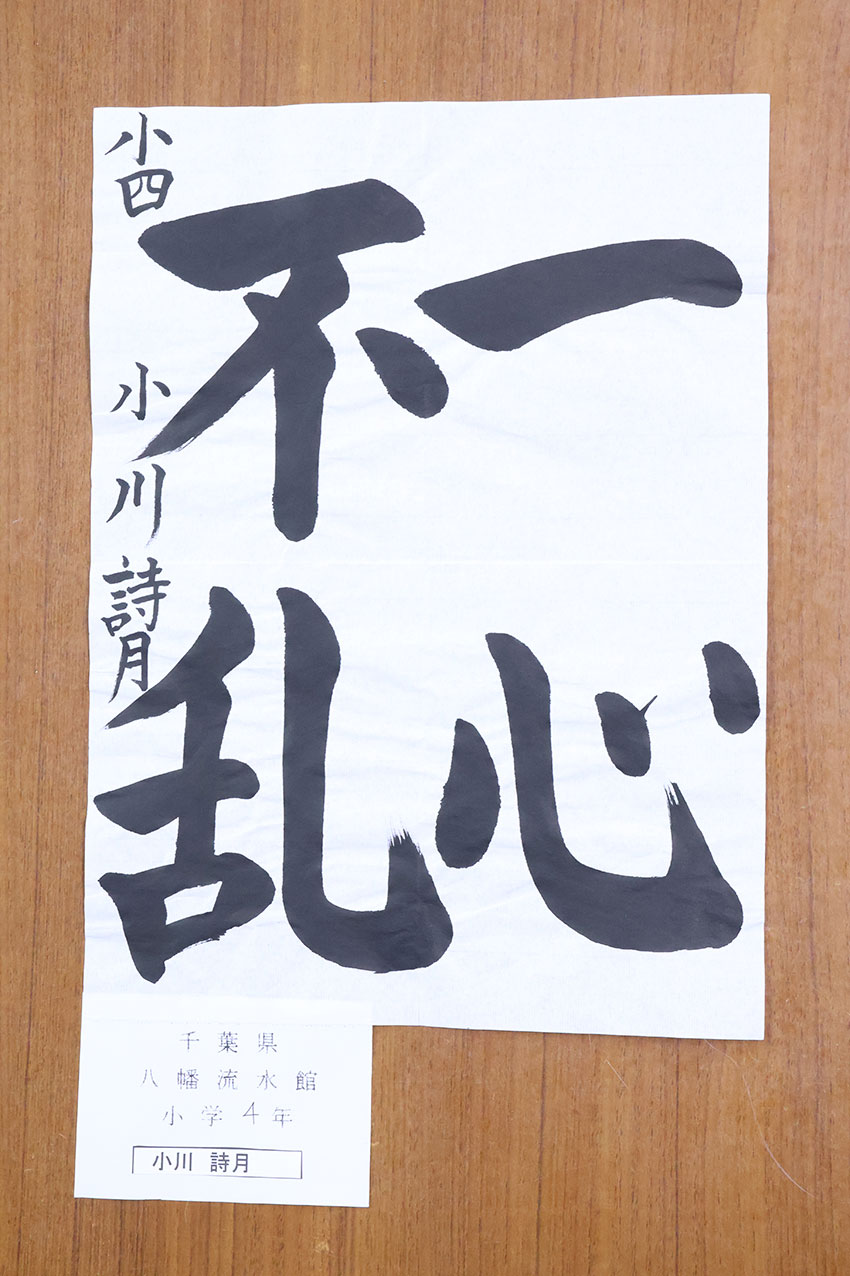 一心
不乱
小四 小川詩月
千葉県
八幡流水館
小学4年
小川 詩月